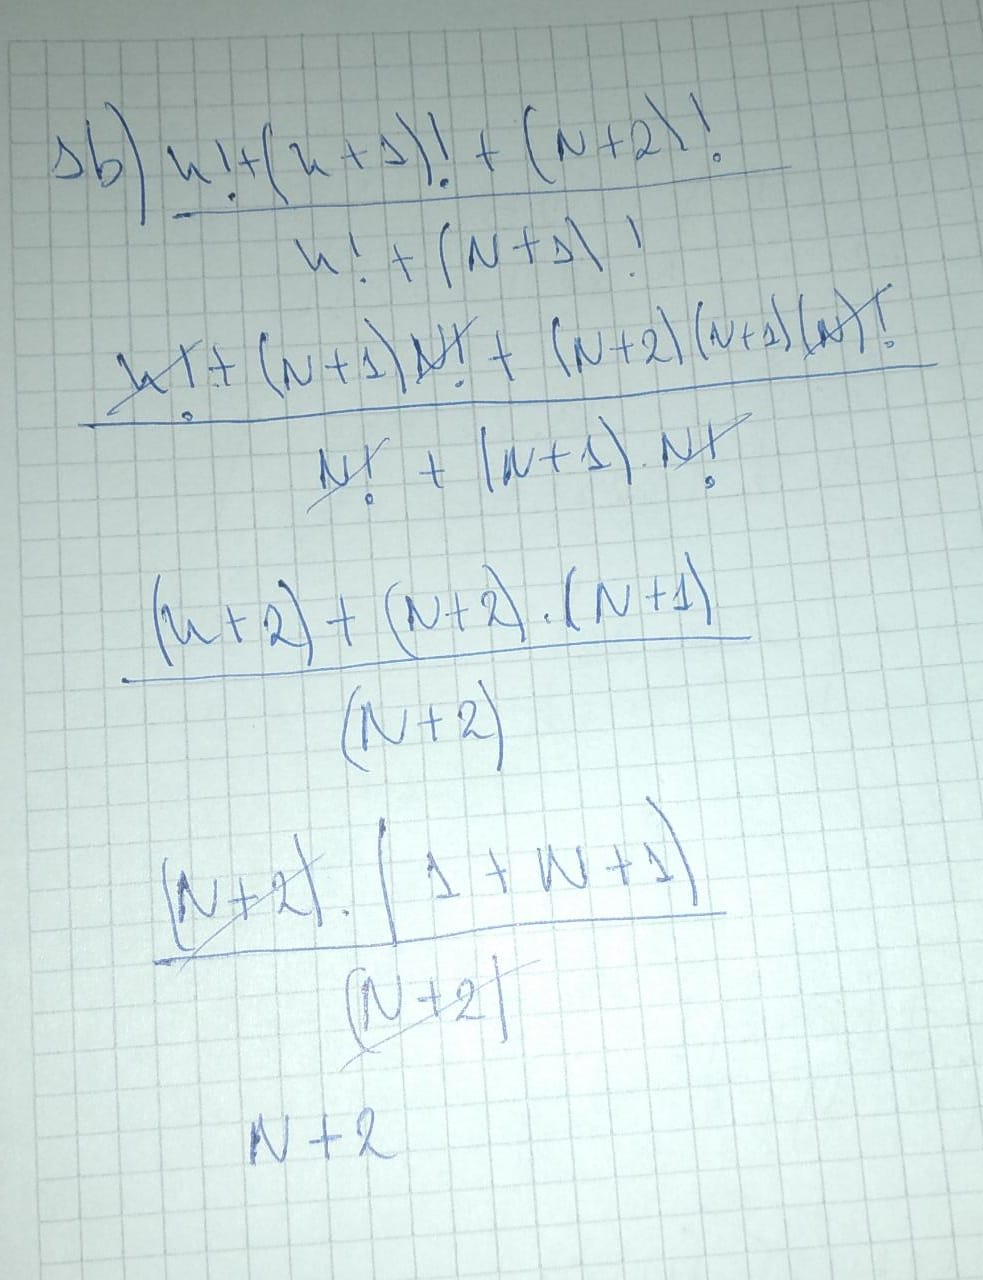 1b) n!+(n+1)!+(N+2)!
n!+(N+1)!
n!+(N+1)N!+(N+2)(N+1)(N)!
N!+(N+1).N!
(n+2)+(N+2).(N+1)
(N+2)
(N+2).(1+N+1)
(N+2)
N+2